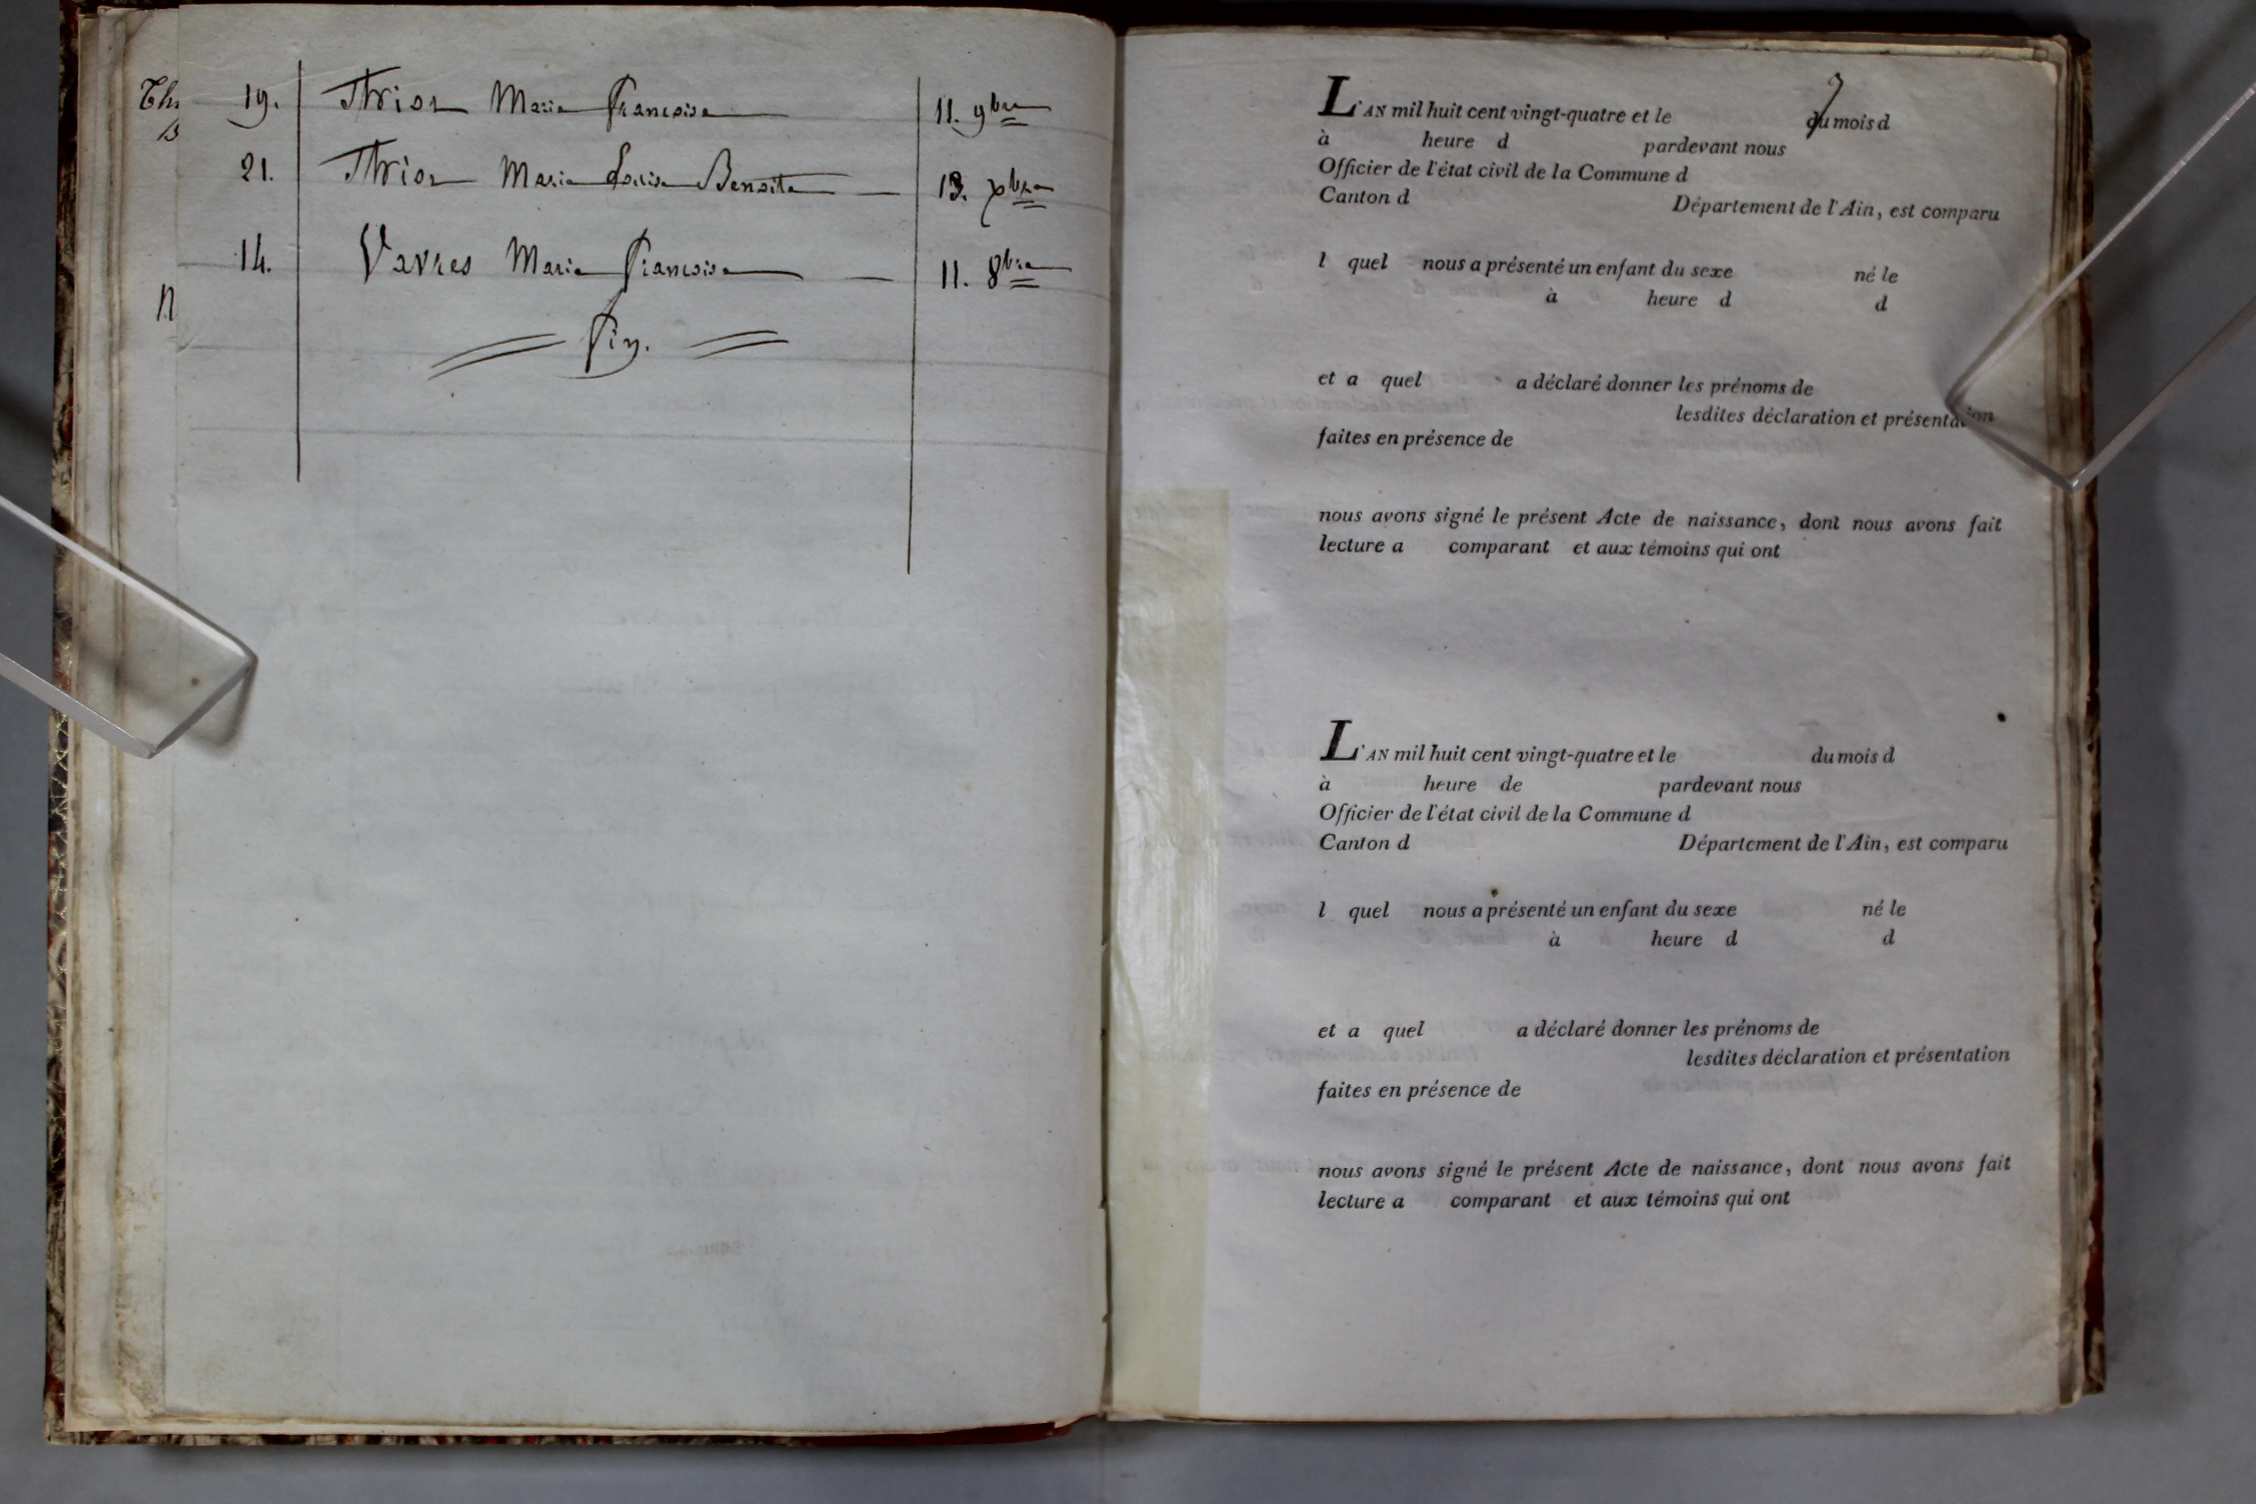 19. Thrion Marie Françoise 11. 9bre
21. Thrion Marie Louise Benoite 13. xbre
14. Vavres Marie Françoise 11. 8bre
Fin.
L'AN mil huit cent vingt-quatre et le du mois d
à heure d pardevant nous
Officier de l'état civil de la Commune d
Canton d Département de l'Ain, est comparu
l quel nous a présenté un enfant du sexe né le
à heure d d
et a quel a déclaré donner les prénoms de
lesdites déclaration et présentation
faites en présence de
nous avons signé le présent Acte de naissance, dont nous avons fait
lecture a comparant et aux témoins qui ont
L'AN mil huit cent vingt-quatre et le du mois d
à heure de pardevant nous
Officier de l'état civil de la Commune d
Canton d Département de l'Ain, est comparu
l quel nous a présenté un enfant du sexe né le
à heure d d
et a quel a déclaré donner les prénoms de
lesdites déclaration et présentation
faites en présence de
nous avons signé le présent Acte de naissance, dont nous avons fait
lecture a comparant et aux témoins qui ont